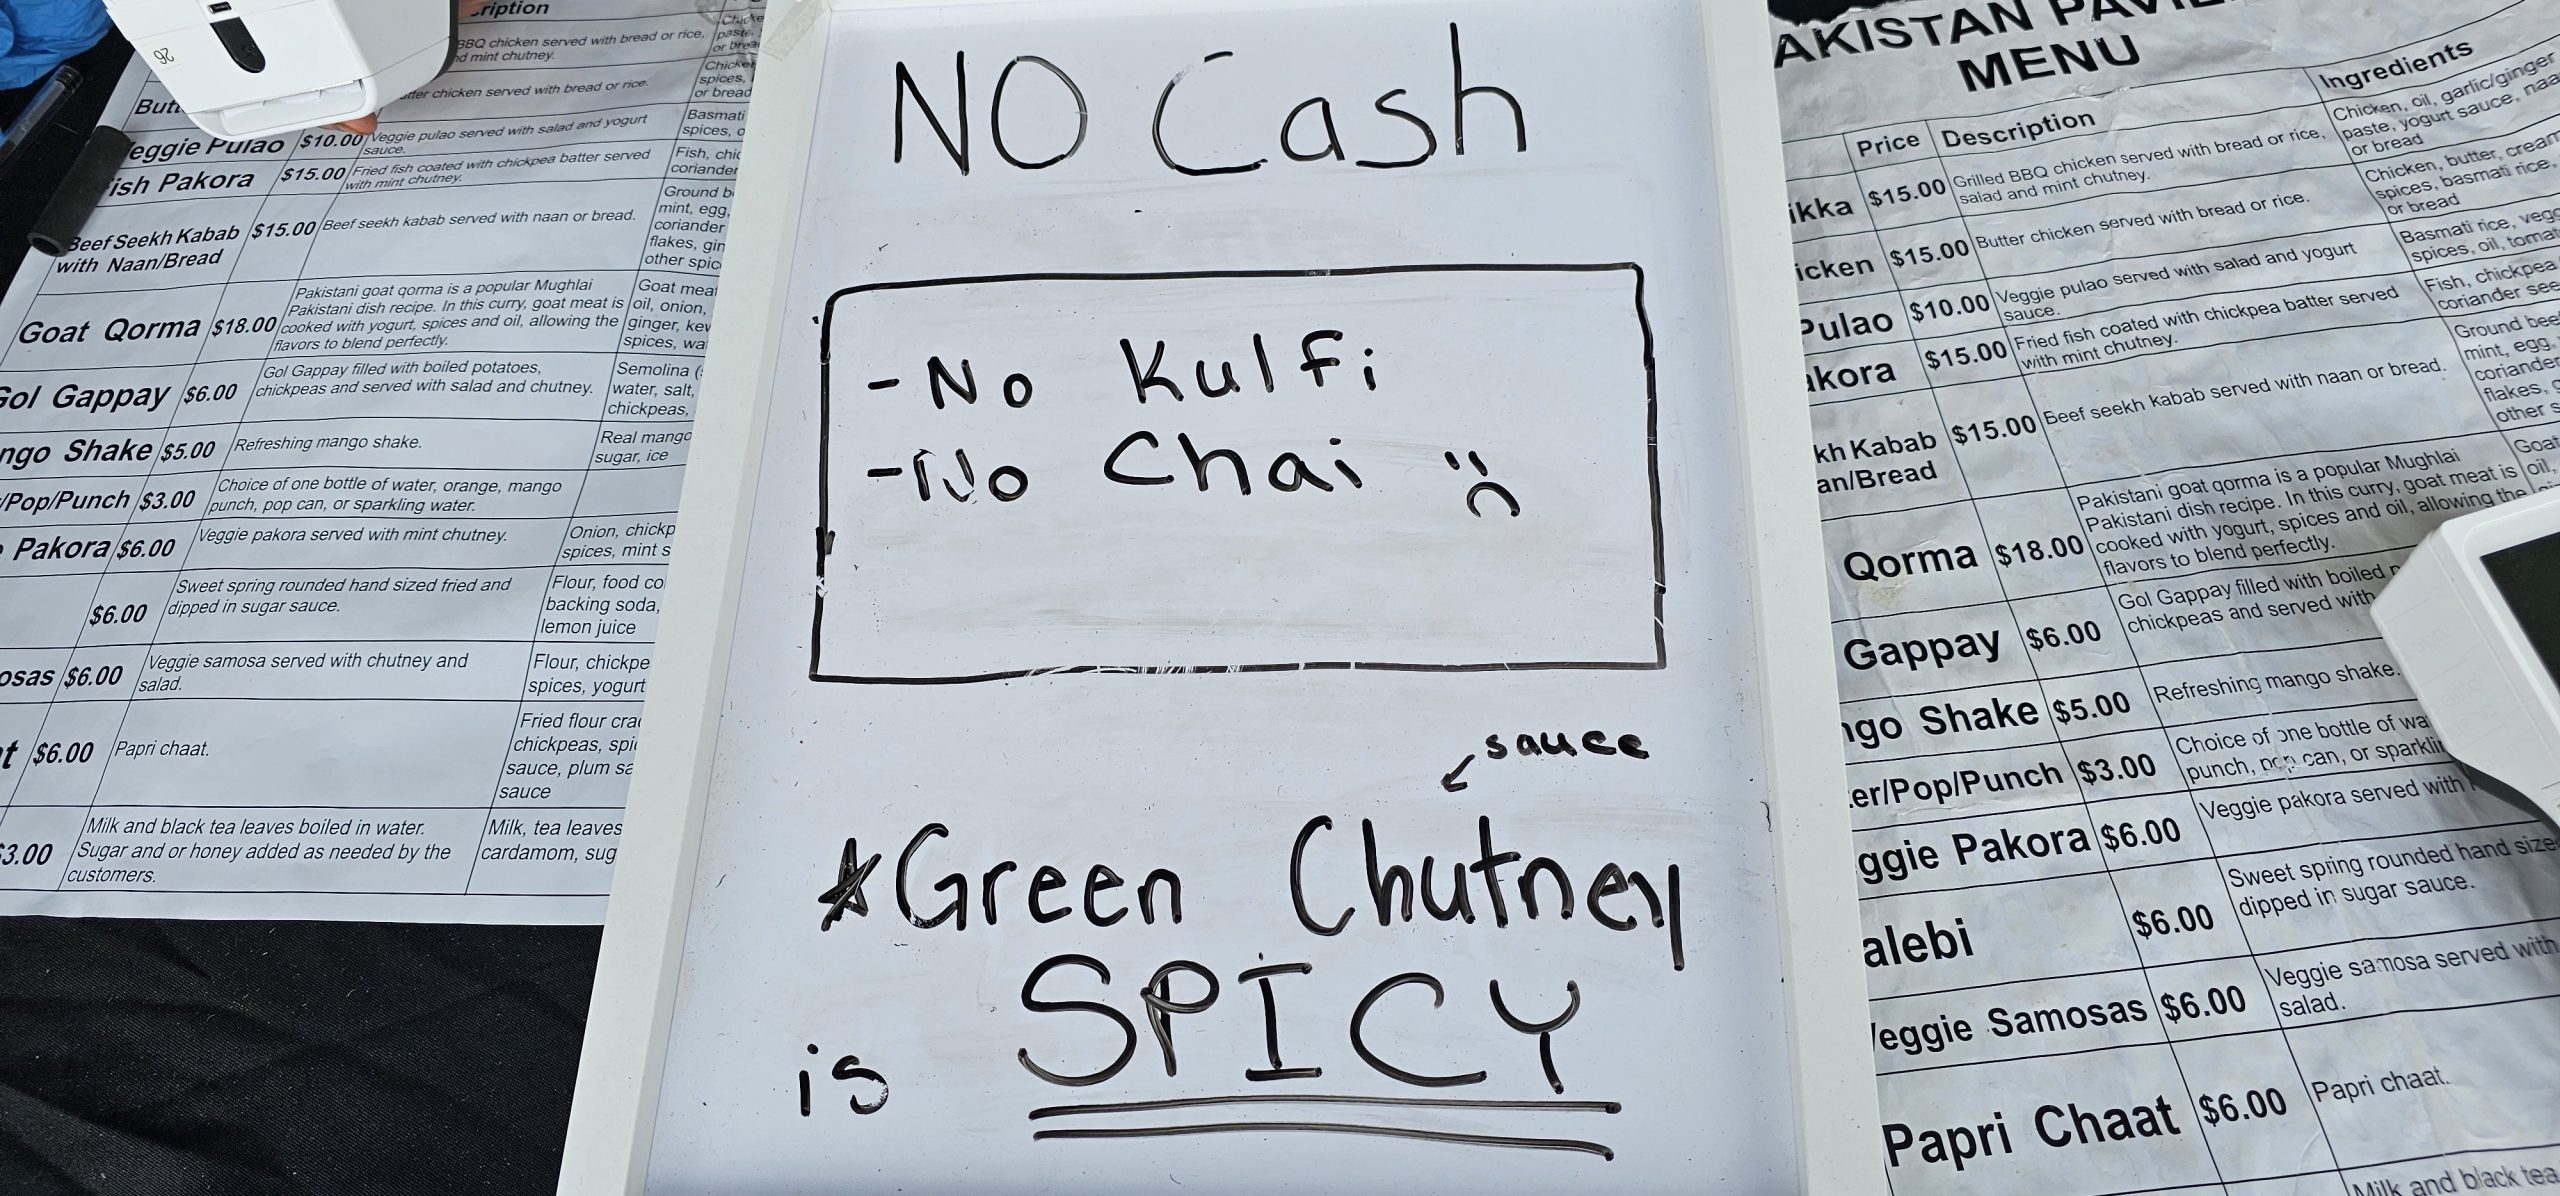 26
ription
BBQ chicken served with bread or rice,
nd mint chutney.
paste,
or brea
Butt
tter chicken served with bread or rice.
Chicke
spices,
or bread
eggie Pulao $10.00 Veggie pulao served with salad and yogurt
sauce.
Basmati
spices, o
ish Pakora $15.00 Fried fish coated with chickpea batter served
with mint chutney.
Fish, chic
coriander
Beef Seekh Kabab
with Naan/Bread
$15.00 Beef seekh kabab served with naan or bread.
Ground b
mint, egg,
coriander
flakes, gin
other spic
Goat Qorma $18.00
Pakistani goat qorma is a popular Mughlai
Pakistani dish recipe. In this curry, goat meat is
cooked with yogurt, spices and oil, allowing the
flavors to blend perfectly.
Goat mea
oil, onion,
ginger, kew
spices, wa
Gol Gappay $6.00
Gol Gappay filled with boiled potatoes,
chickpeas and served with salad and chutney.
Semolina (
water, salt,
chickpeas,
ngo Shake $5.00 Refreshing mango shake.
Real mango
sugar, ice
/Pop/Punch $3.00
Choice of one bottle of water, orange, mango
punch, pop can, or sparkling water.
Pakora $6.00 Veggie pakora served with mint chutney.
Onion, chickp
spices, mint s
$6.00
Sweet spring rounded hand sized fried and
dipped in sugar sauce.
Flour, food co
backing soda,
lemon juice
osas $6.00
Veggie samosa served with chutney and
salad.
Flour, chickpe
spices, yogurt
t $6.00 Papri chaat.
Fried flour cra
chickpeas, spi
sauce, plum sa
sauce
3.00
Milk and black tea leaves boiled in water.
Sugar and or honey added as needed by the
customers.
Milk, tea leaves
cardamom, sug
NO Cash
- No Kulfi
- No Chai :(
sauce
*Green Chutney
is SPICY
AKISTAN PAVIL
MENU
Price Description Ingredients
ikka $15.00
Grilled BBQ chicken served with bread or rice,
salad and mint chutney.
Chicken, oil, garlic/ginger
paste, yogurt sauce, naa
or bread
icken $15.00 Butter chicken served with bread or rice.
Chicken, butter, cream
spices, basmati rice,
or bread
Pulao $10.00
Veggie pulao served with salad and yogurt
sauce.
Basmati rice, vegg
spices, oil, tomat
akora $15.00
Fried fish coated with chickpea batter served
with mint chutney.
Fish, chickpea
coriander see
kh Kabab
an/Bread
$15.00 Beef seekh kabab served with naan or bread.
Ground bee
mint, egg,
coriander
flakes, g
other s
Qorma $18.00
Pakistani goat qorma is a popular Mughlai
Pakistani dish recipe. In this curry, goat meat is
cooked with yogurt, spices and oil, allowing the
flavors to blend perfectly.
Goat
oil,
Gappay $6.00
Gol Gappay filled with boiled p
chickpeas and served with
ngo Shake $5.00 Refreshing mango shake.
er/Pop/Punch $3.00
Choice of one bottle of wa
punch, pop can, or sparklin
ggie Pakora $6.00 Veggie pakora served with
alebi $6.00
Sweet spring rounded hand size
dipped in sugar sauce.
Veggie Samosas $6.00
Veggie samosa served with
salad.
Papri Chaat $6.00 Papri chaat.
Milk and black tea